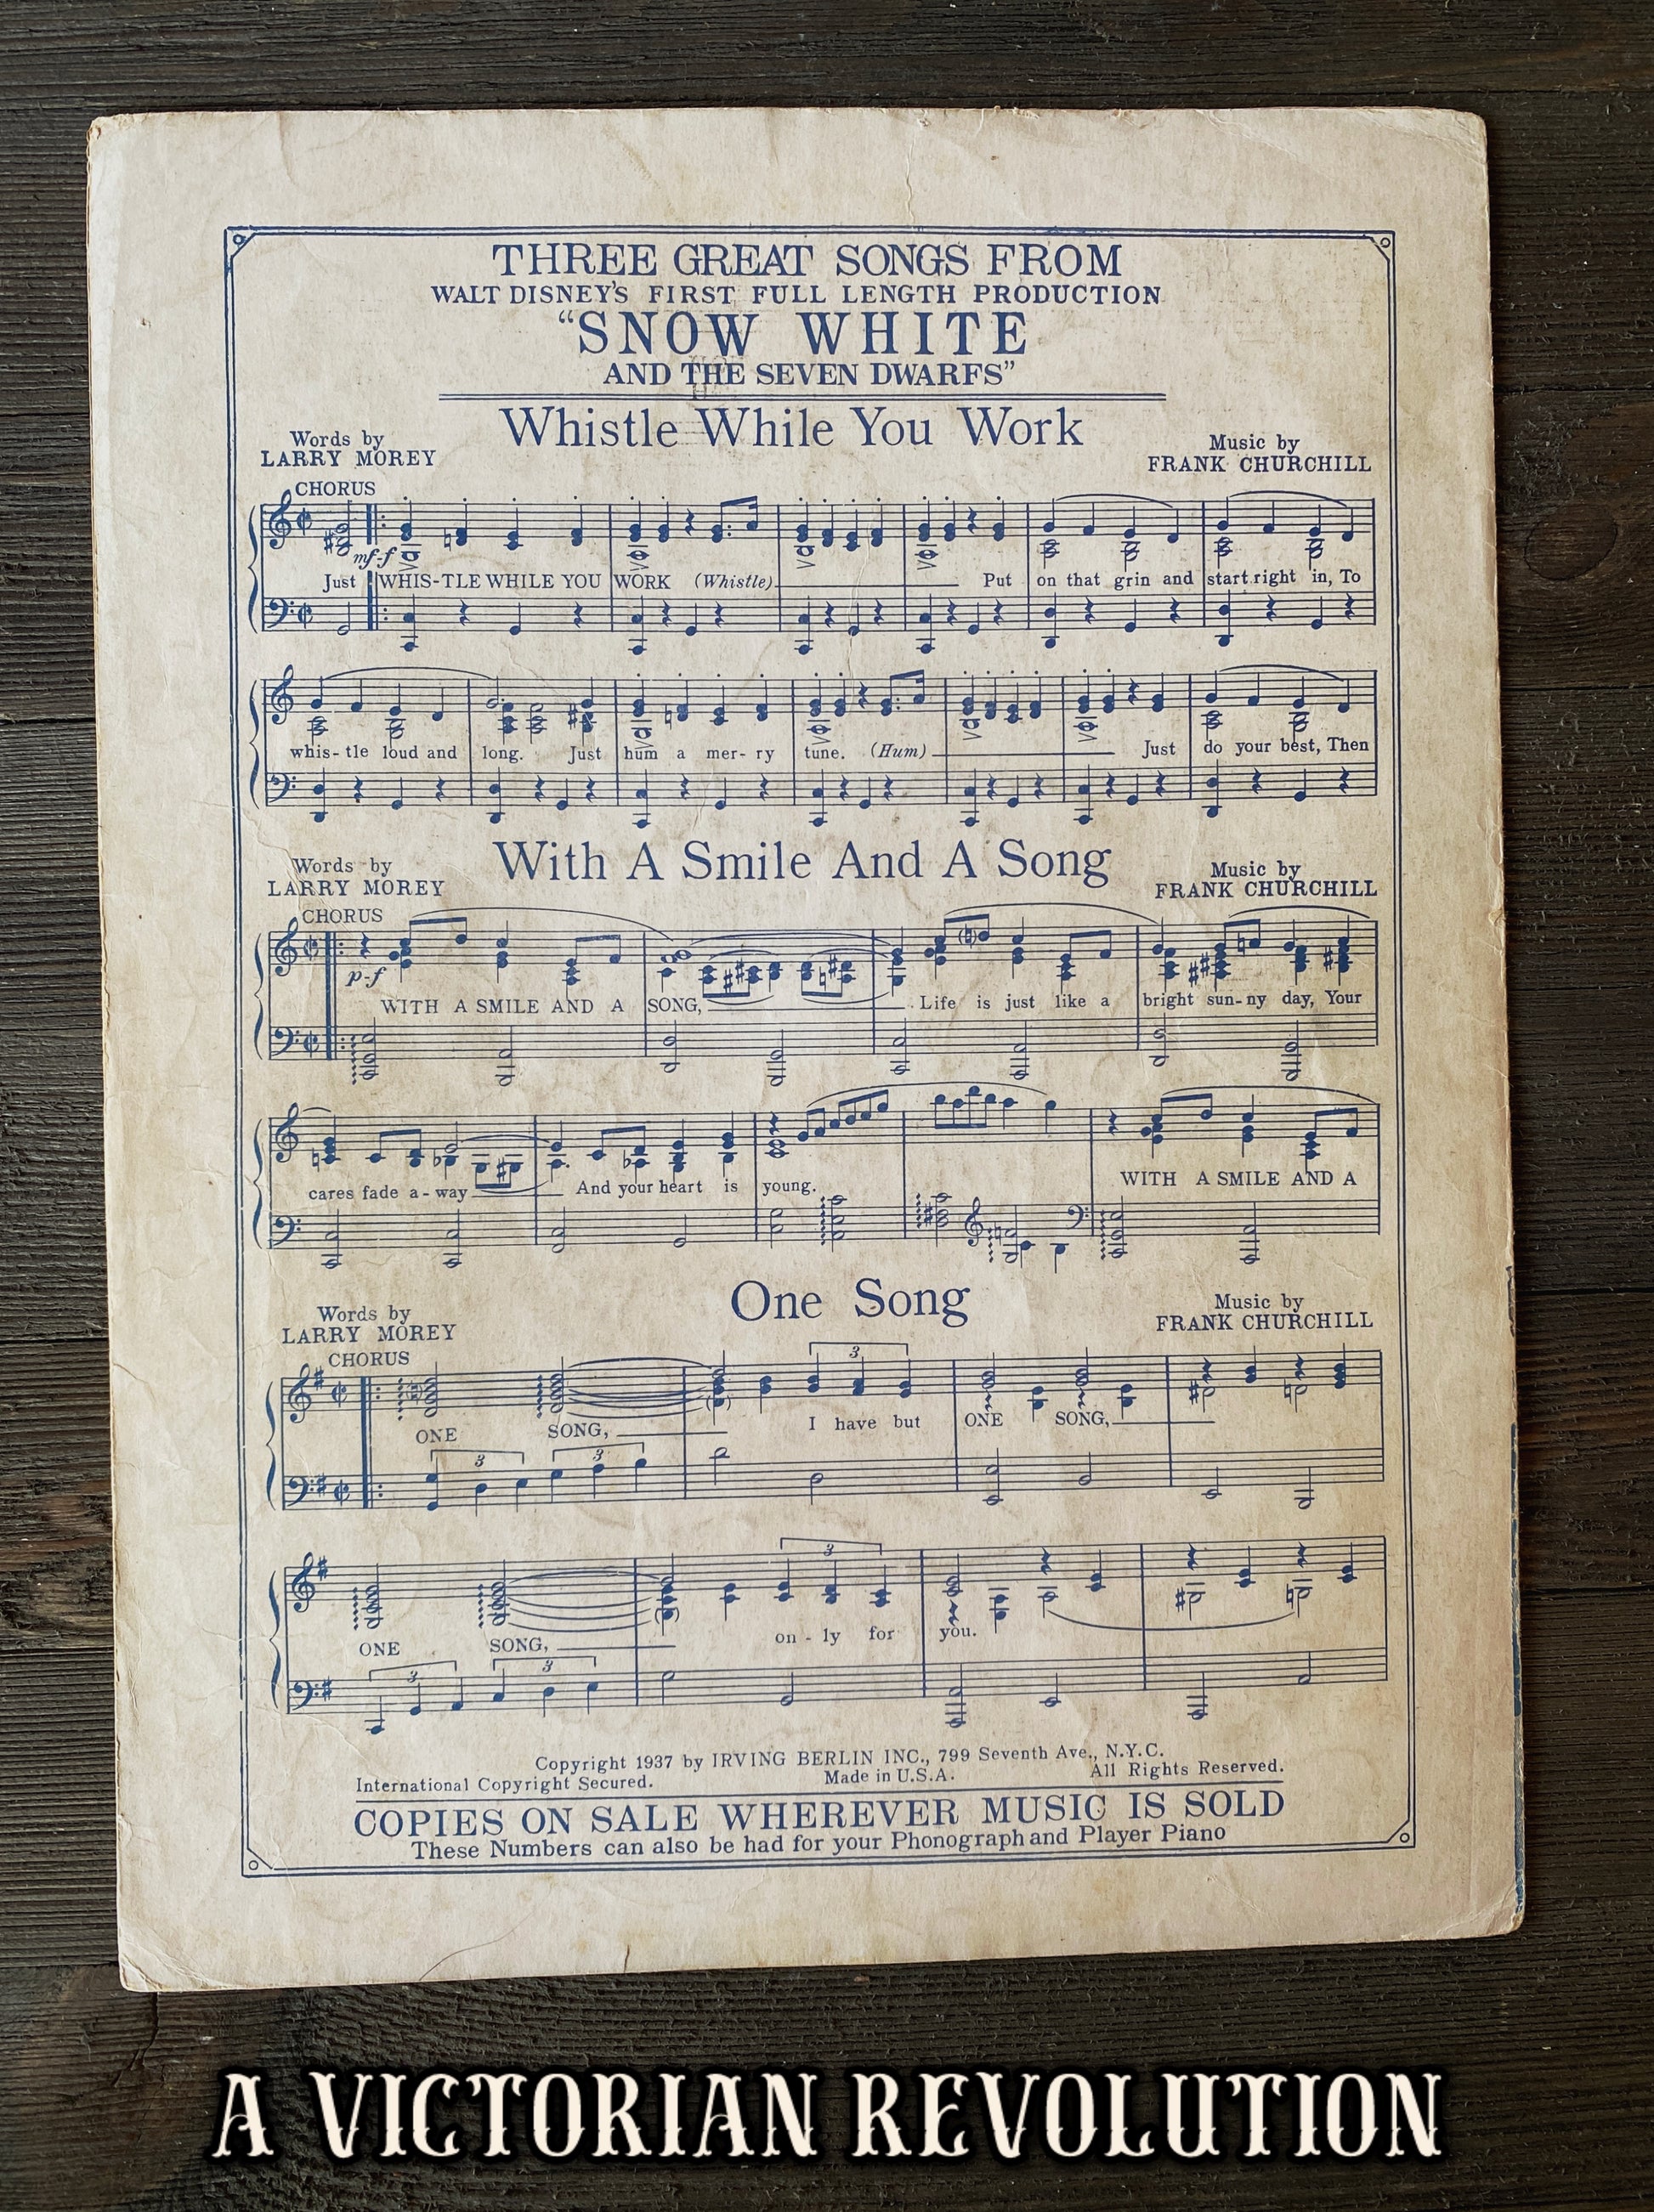 THREE GREAT SONGS FROM
WALT DISNEY'S FIRST FULL LENGTH PRODUCTION
"SNOW WHITE
AND THE SEVEN DWARFS"
Whistle While You Work
Words by
LARRY MOREY
Music by
FRANK CHURCHILL
CHORUS
mf-f
Just WHIS-TLE WHILE YOU WORK (Whistle) Put on that grin and start right in, To
whis-tle loud and long. Just hum a mer-ry tune. (Hum) Just do your best, Then
With A Smile And A Song
Words by
LARRY MOREY
Music by
FRANK CHURCHILL
CHORUS
p-f
WITH A SMILE AND A SONG, Life is just like a bright sun-ny day, Your
cares fade a-way And your heart is young. WITH A SMILE AND A
One Song
Words by
LARRY MOREY
Music by
FRANK CHURCHILL
CHORUS
3
ONE SONG, I have but ONE SONG,
3 3
3
ONE SONG, on-ly for you.
3 3
Copyright 1937 by IRVING BERLIN INC., 799 Seventh Ave., N.Y.C.
International Copyright Secured. Made in U.S.A. All Rights Reserved.
COPIES ON SALE WHEREVER MUSIC IS SOLD
These Numbers can also be had for your Phonograph and Player Piano
A VICTORIAN REVOLUTION